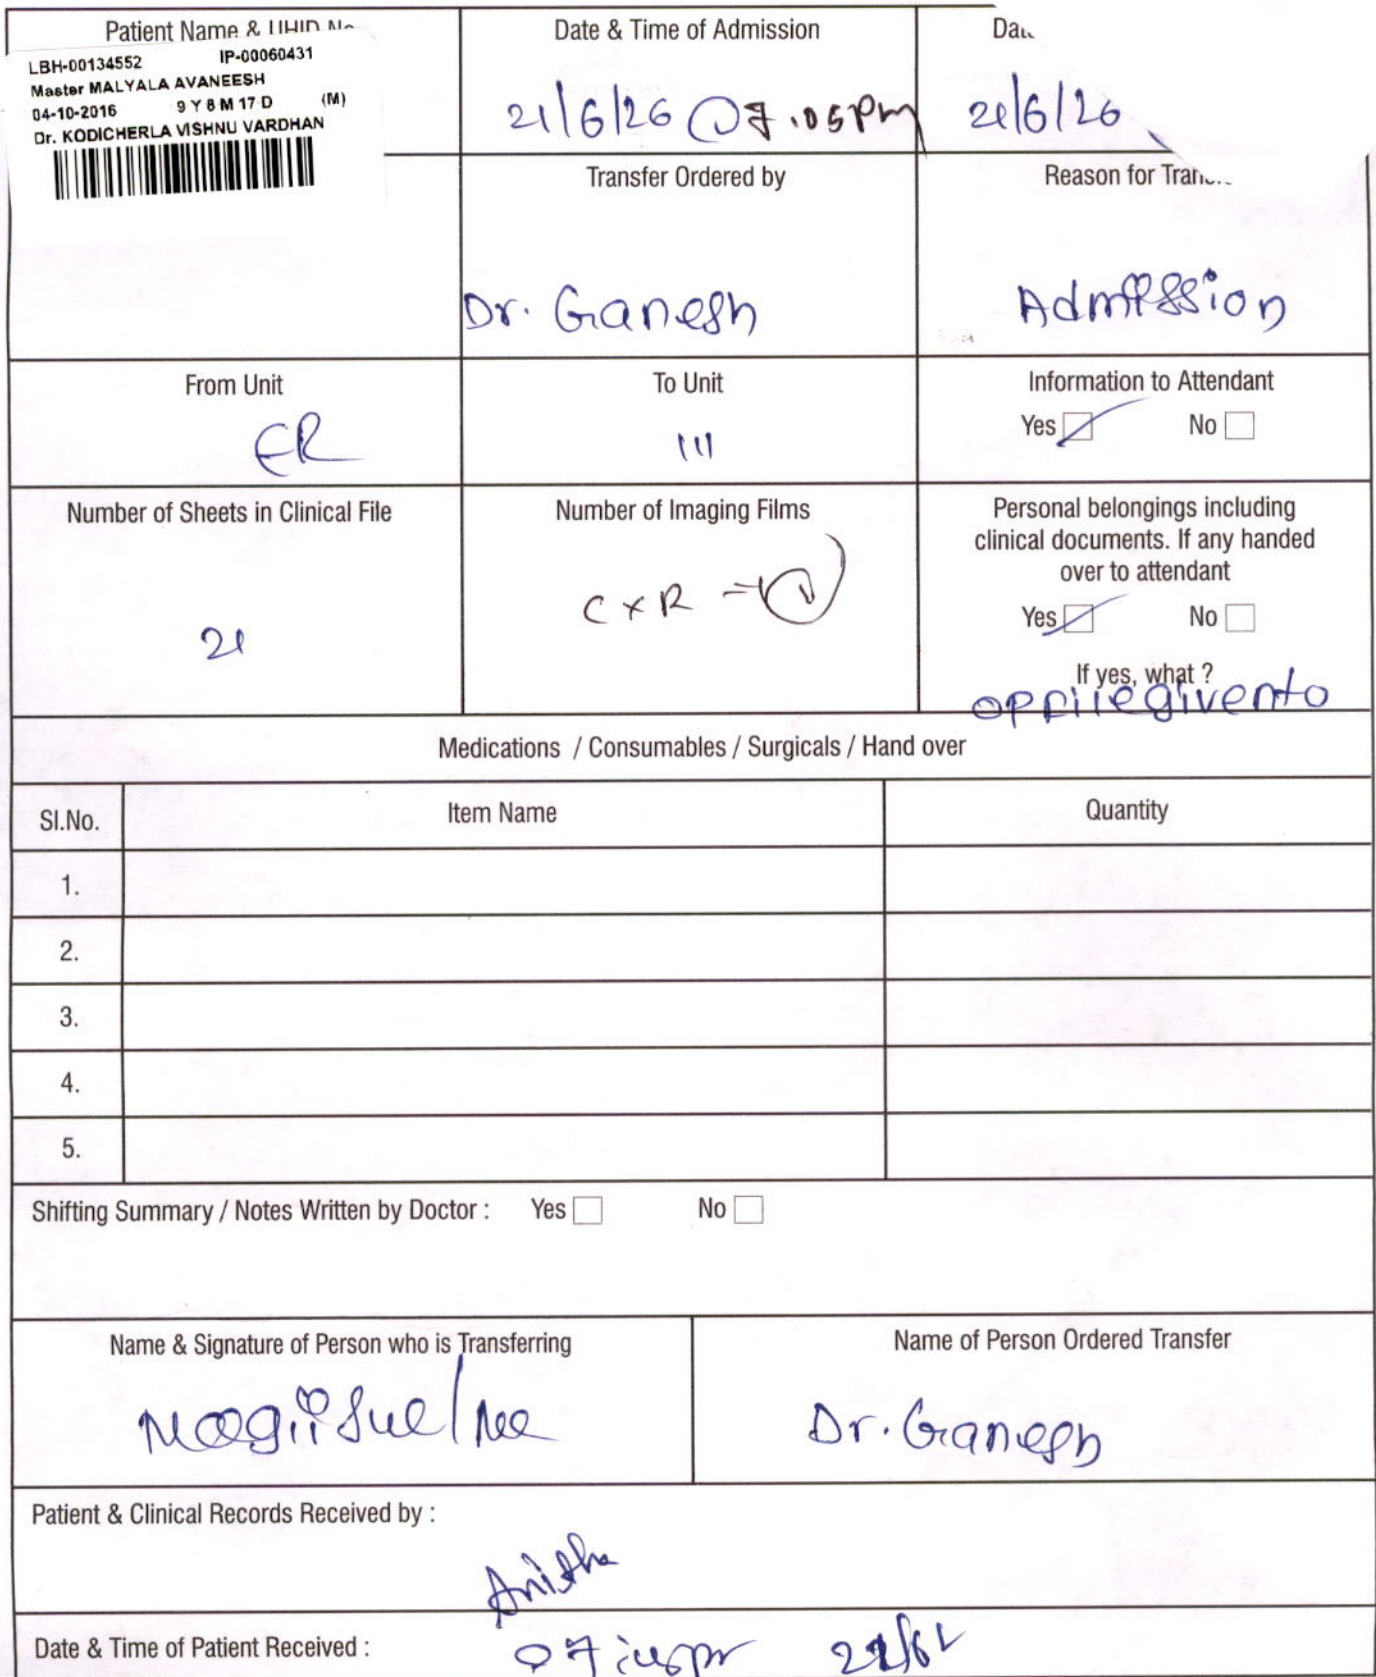 Patient Name & UHID No
LBH-00134552 IP-00060431
Master MALYALA AVANEESH
04-10-2016 9 Y 8 M 17 D (M)
Dr. KODICHERLA VISHNU VARDHAN
Date & Time of Admission
21/6/26 @ 7.05 Pm
21/6/26
Transfer Ordered by
Dr. Ganesh
Reason for
Admission
From Unit
ER
To Unit
III
Information to Attendant
Yes No
Number of Sheets in Clinical File
21
Number of Imaging Films
CXR =
Personal belongings including
clinical documents. If any handed
over to attendant
Yes No
If yes, what ?
givento
Medications / Consumables / Surgicals / Hand over
Sl.No. Item Name Quantity
1.
2.
3.
4.
5.
Shifting Summary / Notes Written by Doctor : Yes No
Name & Signature of Person who is Transferring
Name of Person Ordered Transfer
Dr. Ganesh
Patient & Clinical Records Received by :
Anitha
Date & Time of Patient Received :